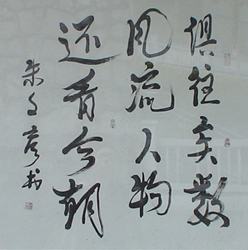 俱往矣数
风流人物
还看今朝